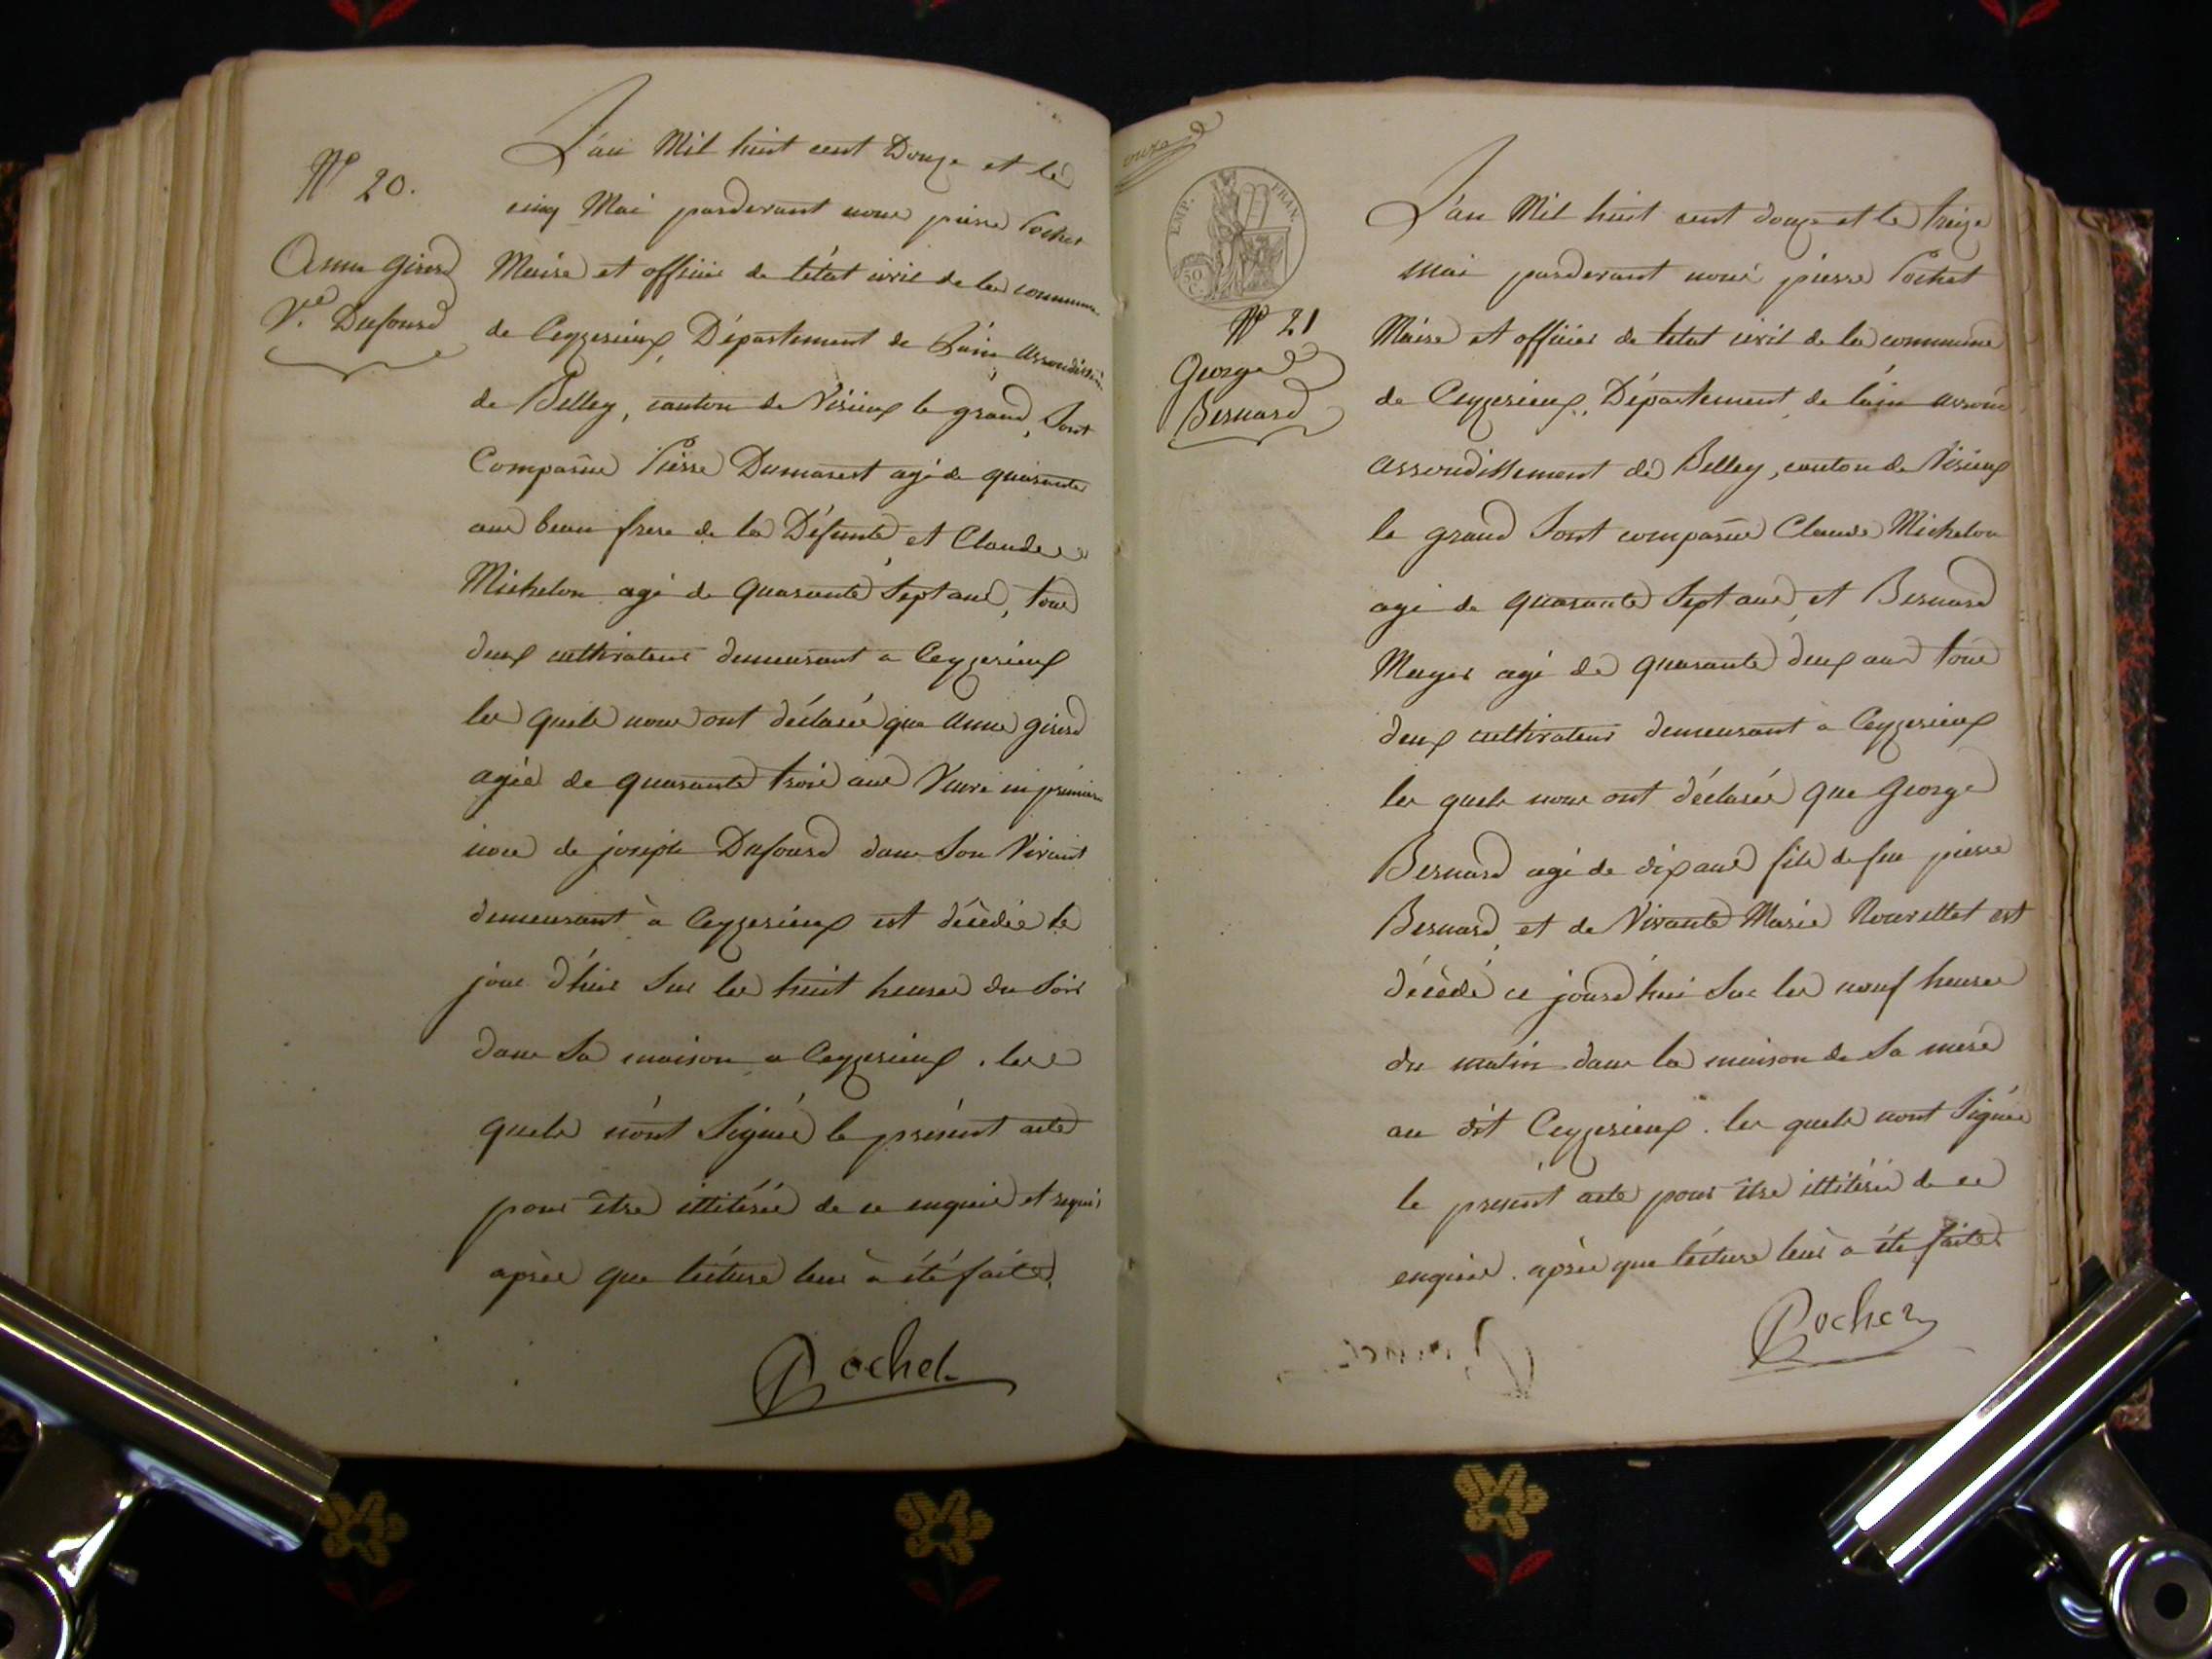 N° 20.
Anne girerd
V.e Dufourd
L'an Mil huit cent Douze et le
cinq Mai pardevant nous pierre Pochet
Maire et officier de l'état civil de la commune
de Ceyzerieux, Département de l'ain arrondissem.
de Belley, canton de Virieux le grand, Sont
Comparus Pierre Dumarest agé de quarante
ans beau frere de la Défunte, et Claude
Michelon agé de quarante Sept ans, tous
deux cultivateurs demeurant a Ceyzerieux
les quels nous ont déclarés que anne girerd
agée de quarante trois ans Veuve en premiere
noce de joseph Dufourd dans Son Vivant
demeurant à Ceyzerieux est décédée le
jour d'hier Sur les huit heures du Soir
dans Sa maison a Ceyzerieux. les
quels n'ont Signés le présent acte
pour être illitérés de ce enquis et requis
après que lécture leur à été faite.
Pochet
EMP. FRAN.
50 C.
N° 21
George
Bernard
L'an Mil huit cent douze et le treize
mai pardevant nous pierre Pochet
Maire et officier de l'état civil de la commune
de Ceyzerieux, Département de l'ain arron
arrondissement de Belley, canton de Virieux
le grand Sont comparus Claude Michelon
agé de quarante Sept ans, et Bernard
agé de quarante deux ans tous
deux cultivateurs demeurant a Ceyzerieux
les quels nous ont déclarés que George
Bernard agé de dix ans fils de feu pierre
Bernard et de Vivante Marie est
décédé ce jourd'hui Sur les neuf heures
du matin dans la maison de Sa mere
au dit Ceyzerieux. les quels n'ont Signés
le présent acte pour être illitérés de ce
enquis. après que lécture leur à été faite
Pochet